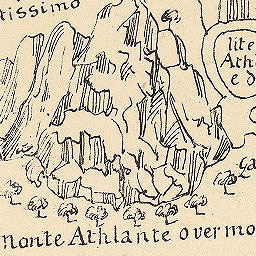 tissimo
lite
Athl
e d
ca
monte Athlante over mo